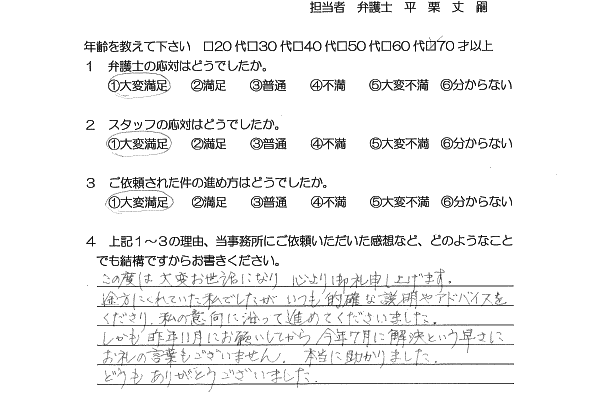 担当者　弁護士　平　栗　丈　嗣
年齢を教えて下さい　□20代□30代□40代□50代□60代☑70才以上
１　弁護士の応対はどうでしたか。
①大変満足　②満足　③普通　④不満　⑤大変不満　⑥分からない
２　スタッフの応対はどうでしたか。
①大変満足　②満足　③普通　④不満　⑤大変不満　⑥分からない
３　ご依頼された件の進め方はどうでしたか。
①大変満足　②満足　③普通　④不満　⑤大変不満　⑥分からない
４　上記１～３の理由、当事務所にご依頼いただいた感想など、どのようなこと
でも結構ですからお書きください。
この度は大変お世話になり　心より御礼申し上げます。
途方にくれていた私でしたが　いつも的確な説明やアドバイスを
くださり、私の意向に沿って進めてくださいました。
しかも昨年11月にお願いしてから　今年7月に解決という早さに
お礼の言葉もございません。　本当に助かりました。
どうもありがとうございました。